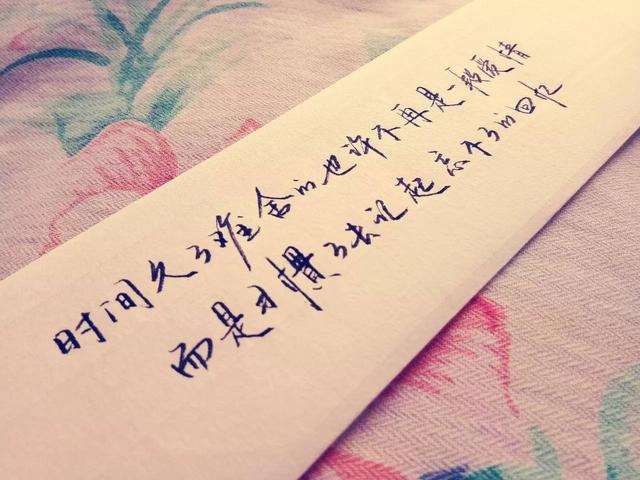 时间久了难舍的也许不再是一段爱情
而是习惯了去记起忘不了的回忆